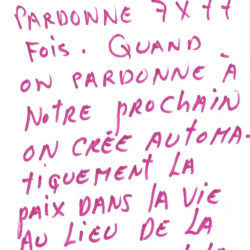 PARDONNE 7 X 77
FOIS. QUAND
ON PARDONNE À
NOTRE PROCHAIN
ON CRÉE AUTOMA-
TIQUEMENT LA
PAIX DANS LA VIE
AU LIEU DE LA